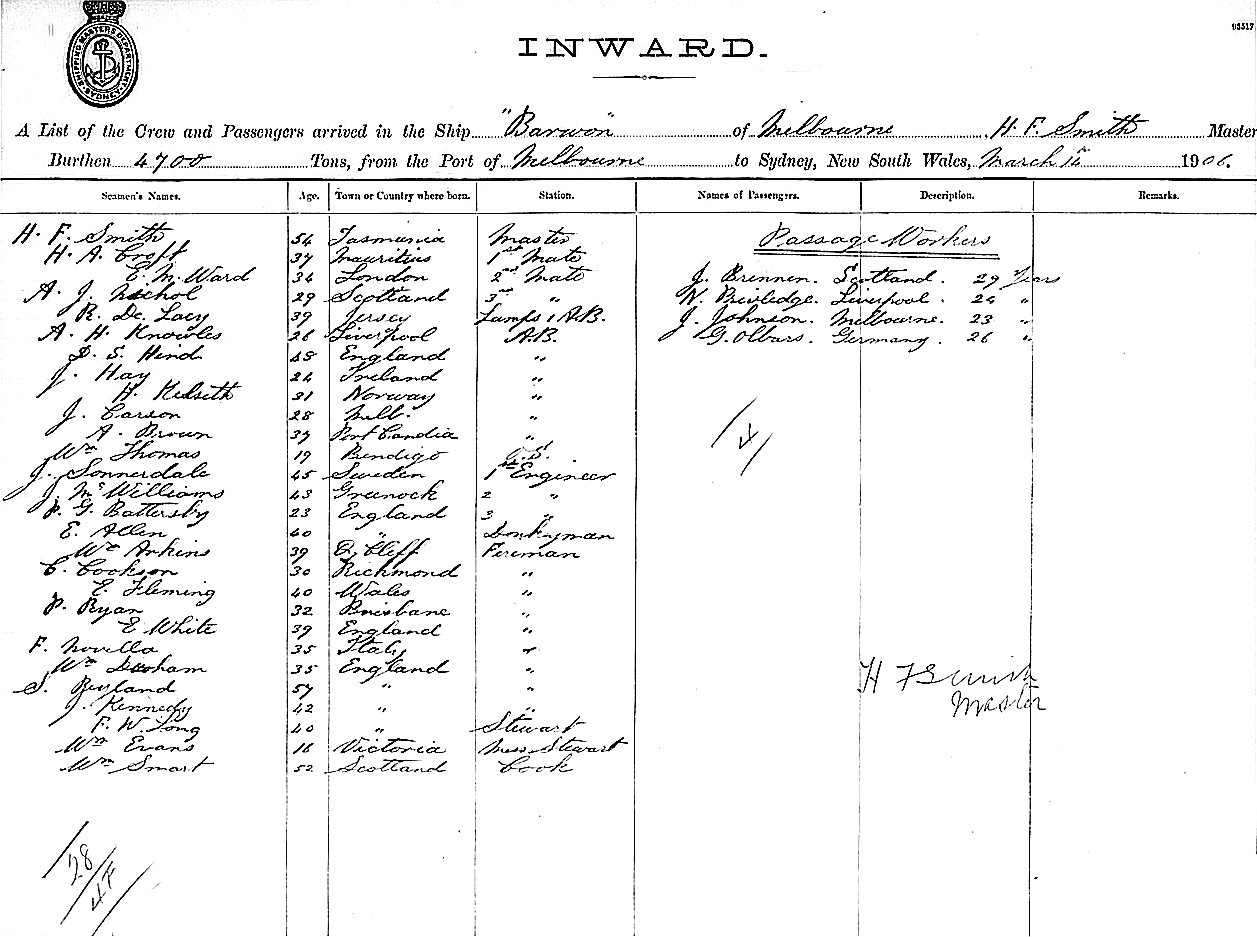 SHIPPING MASTERS DEPARTMENT SYDNEY
03517
INWARD.
A List of the Crew and Passengers arrived in the Ship "Barwon" of Melbourne, H. F. Smith Master
Burthen 4700 Tons, from the Port of Melbourne to Sydney, New South Wales, March 1906.
Seamen's Names. Age. Town or Country where born. Station. Names of Passengers. Description. Remarks.
H. F. Smith 54 Tasmania Master
Passage Workers
H. A. Croft 37 Mauritius 1st Mate
E. M. Ward 34 London 2nd Mate
J. Brennen. Scotland. 29 Years
A. J. Nichol 29 Scotland 3rd "
N. Liverpool. 24 "
R. De Lacy 39 Jersey Lamps & A.B.
J. Johnson. Melbourne. 23 "
A. H. Knowles 26 Liverpool A.B.
G. Olbars. Germany. 26 "
D. S. Hind 48 England "
J. Hay 24 Ireland "
H. Kelseth 31 Norway "
J. Carson 28 Melb. "
A. Brown 37 Port Candia "
Wm Thomas 19 Bendigo O.S.
J. Sonnerdale 45 Sweden 1st Engineer
J. McWilliams 43 Greenock 2 "
P. G. Battersby 23 England 3 "
E. Allen 40 " Donkyman
Wm Arkins 39 Q. Cliff Fireman
C. Cookson 30 Richmond "
E. Fleming 40 Wales "
P. Ryan 32 Brisbane "
E White 39 England "
F. Novella 35 Italy "
Wm 35 England "
S. 57 " "
J. Kennedy 42 " "
F. W. Long 40 " Stewart
Wm Evans 16 Victoria Mess Stewart
Wm Smart 52 Scotland Cook
4
H F Smith
Master
28
4F